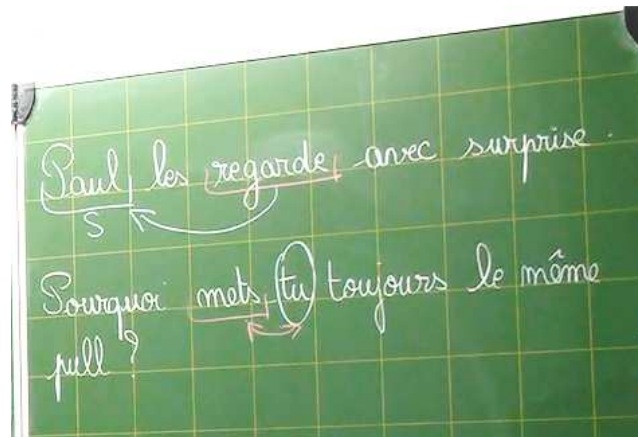 Paul les regarde avec surprise.
S
Pourquoi mets tu toujours le même
pull ?